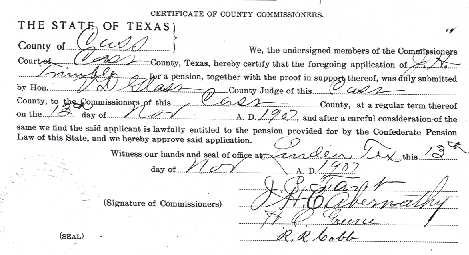 CERTIFICATE OF COUNTY COMMISSIONERS.
THE STATE OF TEXAS,
County of Cass
We, the undersigned members of the Commissioners
Court of Cass County, Texas, hereby certify that the foregoing application of
for a pension, together with the proof in support thereof, was duly submitted
by Hon. J D Glass County Judge of this Cass
County, to the Commissioners of this Cass County, at a regular term thereof
on the 13 day of Nov A. D. 1907, and after a careful consideration of the
same we find the said applicant is lawfully entitled to the pension provided for by the Confederate Pension
Law of this State, and we hereby approve said application.
Witness our hands and seal of office at Linden Tex this 13th
day of Nov A. D. 1907
J. H. Abernathy
(Signature of Commissioners)
(SEAL) R. R. Cobb